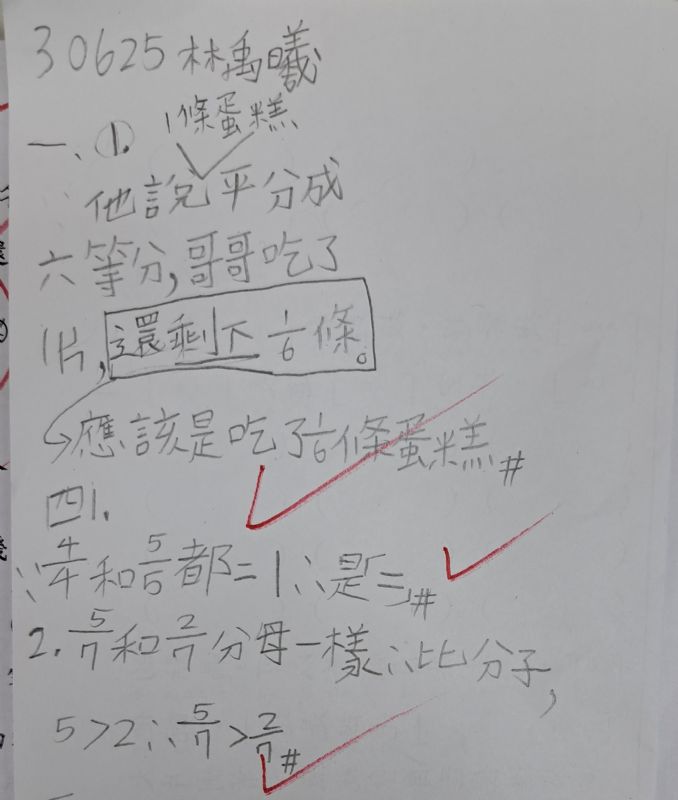 30625 林禹曦
一、①. 1條蛋糕
他說平分成
六等分,哥哥吃了
1片,還剩下 1/6 條。
應該是吃了1/6條蛋糕#
四1.
∵4/4和5/5都=1∴是=,#
2. 5/7和2/7分母一樣∴比分子,
5>2∴5/7>2/7#